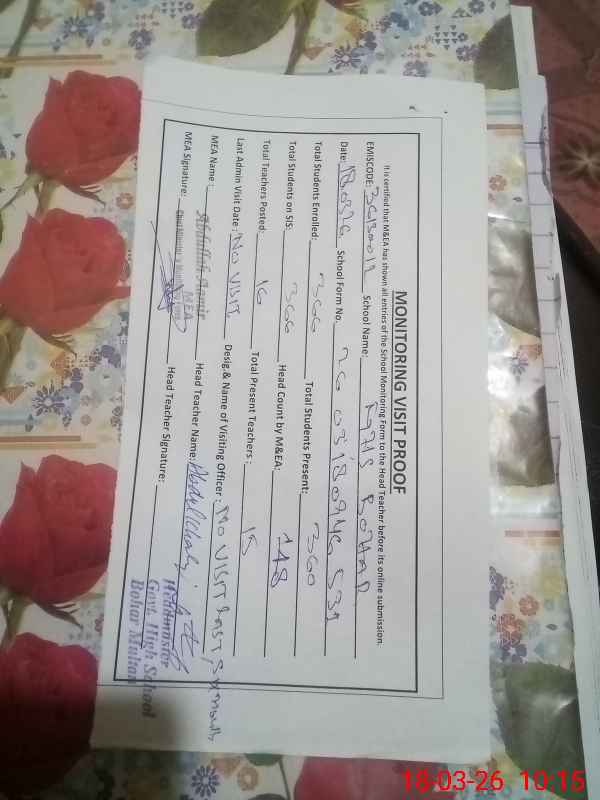 MONITORING VISIT PROOF
It is certified that M&EA has shown all entries of the School Monitoring Form to the Head Teacher before its online submission.
EMISCODE: School Name: BOHAR
Date: School Form No.
Total Students Enrolled: 366 Total Students Present: 360
Total Students on SIS: 366 Head Count by M&EA: 148
Total Teachers Posted: 16 Total Present Teachers: 15
Last Admin Visit Date: NO VISIT Desig & Name of Visiting Officer: NO VISIT LAST 3 Month
MEA Name: Abdullah Aamir Head Teacher Name: Abdul Khaliq
MEA
MEA Signature: Head Teacher Signature:
Headmaster
Govt. High School
Bohar Multan
18-03-26 10:15